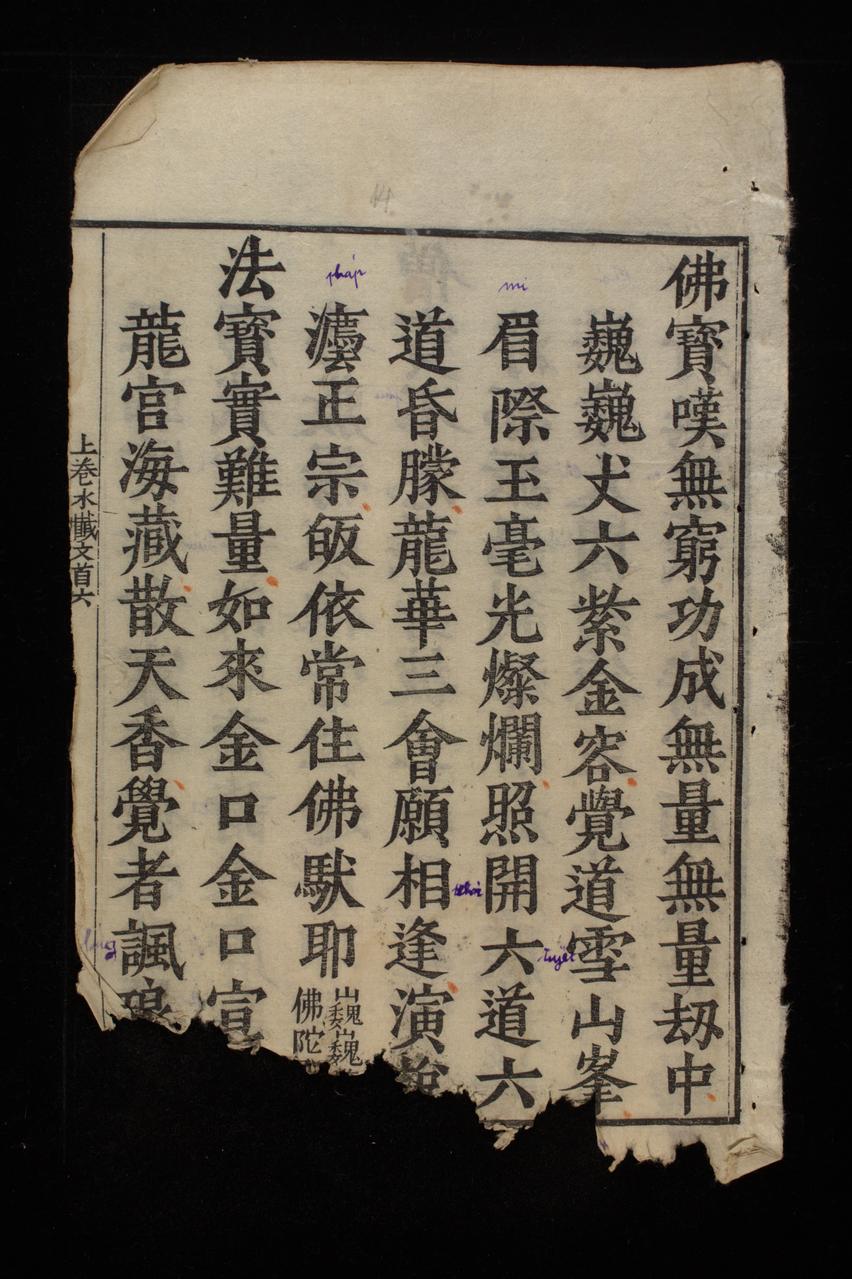 佛寶嘆無窮功成無量無量劫中
巍巍丈六紫金容覺道雪山峯
tuyết
mi
眉際玉毫光燦爛照開六道六
道昏朦龍華三會願相逢演說
pháp
灋正宗皈依常住佛馱耶
巍巍
佛陀
法寶實難量如來金口金口宣
龍宮海藏散天香覺者諷琅
上卷水懺文首六